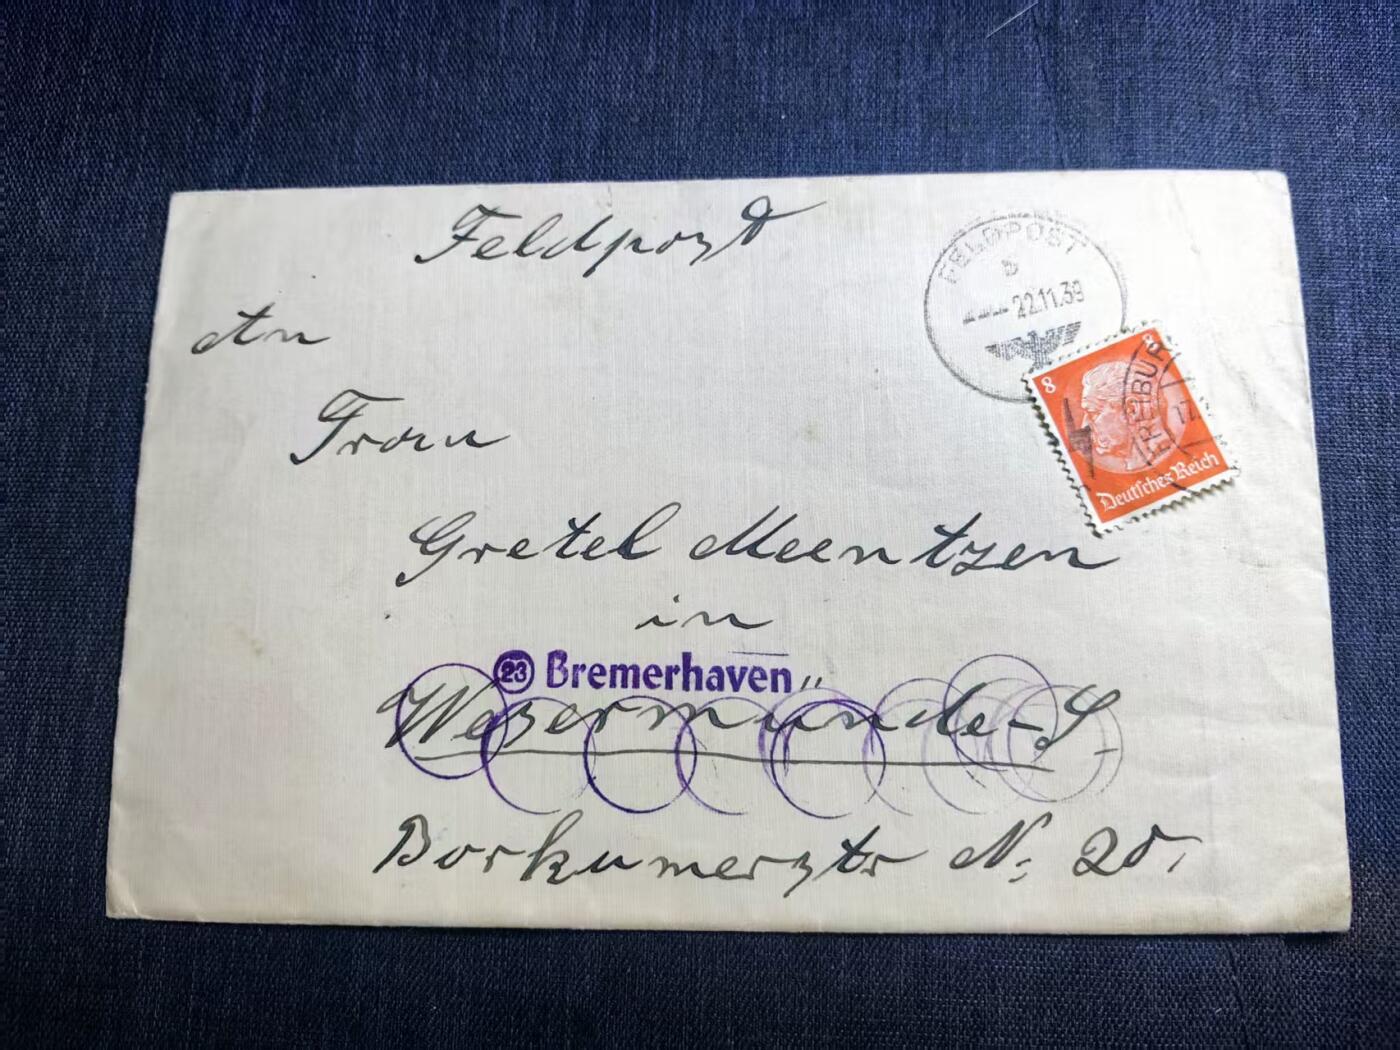 Feldpost
FELDPOST
b
22.11.39
An
Frau
8 8
FREIBUR
17.
Deutsches Reich
Gretel Meentzen
in
23 Bremerhaven
Wesermünde-L
Borkumerstr N: 20.